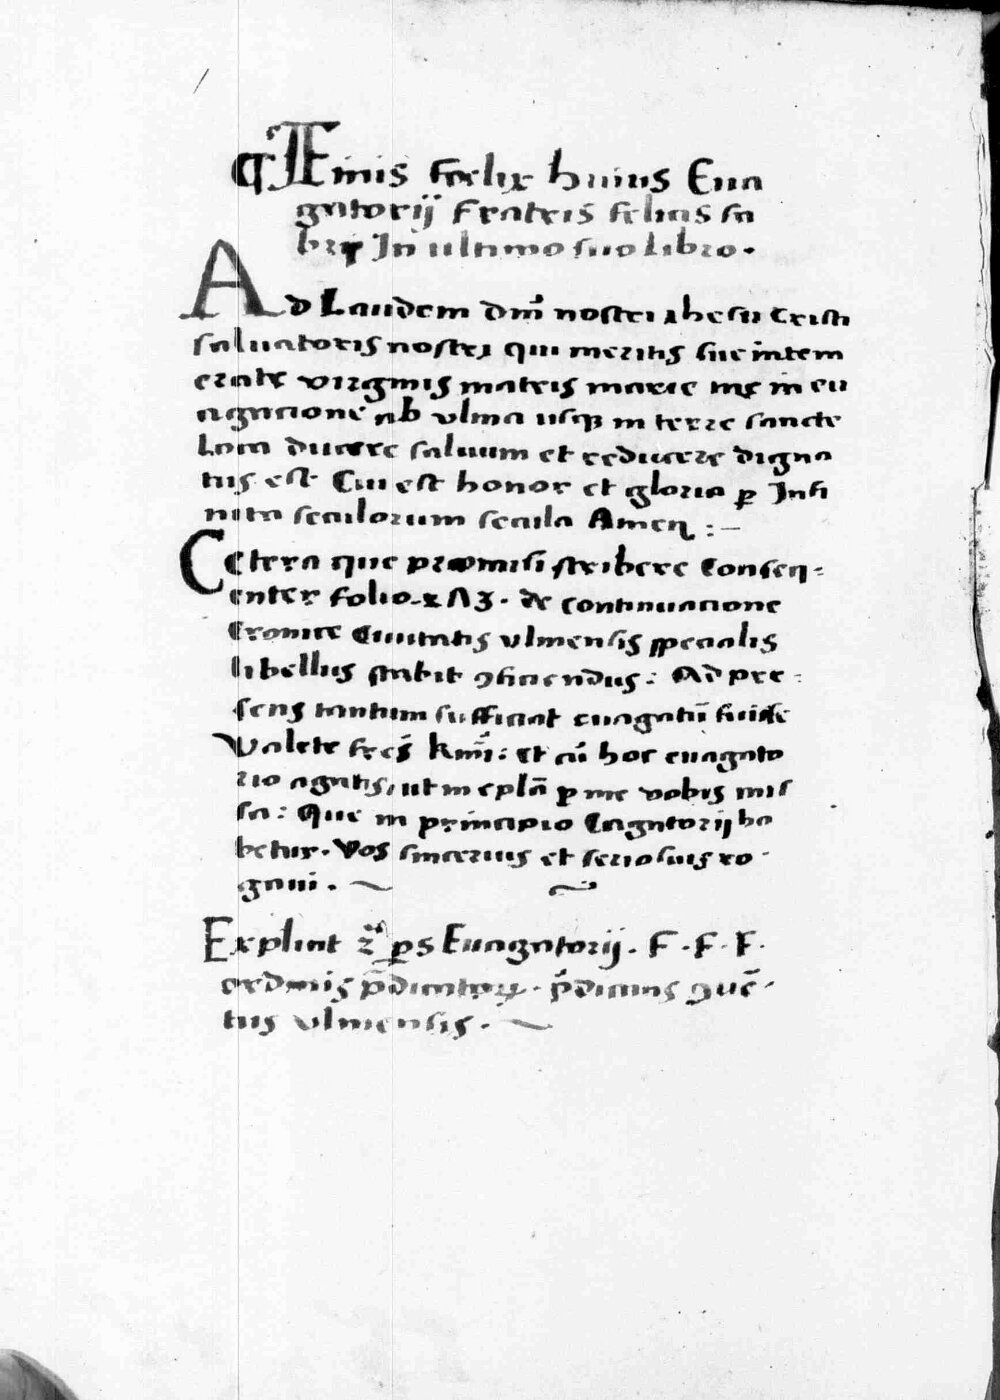 ¶ Finis fœlix huius Eua
gatorij Fratris felicis fa
bry In ultimo suo Libro.
Ad Laudem dm̄ nostri ihesu Cristi
saluatoris nostri qui meritis sue intem
erate virginis matris marie me in eu
agacione ab vlma usq3 in terre sancte
Loca ducere saluum et reducere digna
tus est Cui est honor et gloria ꝑ Infi
nita seculorum secula Amen :–
Cetera que præmisi scribere Conseq:
enter folio de continuacione
Cronice Ciuitatis vlmensis specialis
libellus stabit ꝯficiendus: Ad pre:
sens tantum sufficiat euagatū fuisse
Valete frēs kmī: et cū hoc euagato
rio agatis, ut in eplā ꝑ me vobis mis
sa: Que in principio Eagatorij ha
betur. Vos sincerius et seriosius ro
gaui. ~ ~
Explicat ꝑs Euagatorij. F. F. F.
ordinis p̄dicatorꝝ. p̄dicans ꝯuē
tus vlmensis. ~